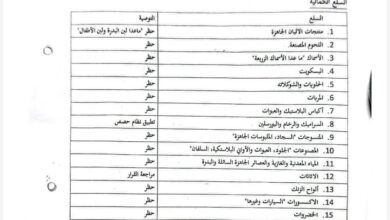 السلع الكمالية
السلع التوصية
1. منتجات الألبان الجاهزة حظر "ماعدا لبن البدرة ولبن الأطفال"
2. اللحوم المصنعة. حظر
3. الأسماك "ما عدا أسماك الزريعة" حظر
4. البسكويت حظر
5. الحلويات والشوكلاته حظر
6. المربات حظر
7. أكياس البلاستيك والعبوات حظر
8. السراميك والرخام والبورسلين تطبيق نظام حصص
9. المنسوجات "السجاد، الملبوسات الجاهزة" حظر
10. المصنوعات "الجلود، العبوات والأواني البلاستكية، السلفان" حظر
11. المياه المعدنية والغازية والعصائر الجاهزة السائلة والبدرة حظر
12. الاثاثات مراجعة القرار
13. ألواح الزنك حظر
14. الاكسسورات "السيارات وغيرها" حظر
15. الخضروات حظر